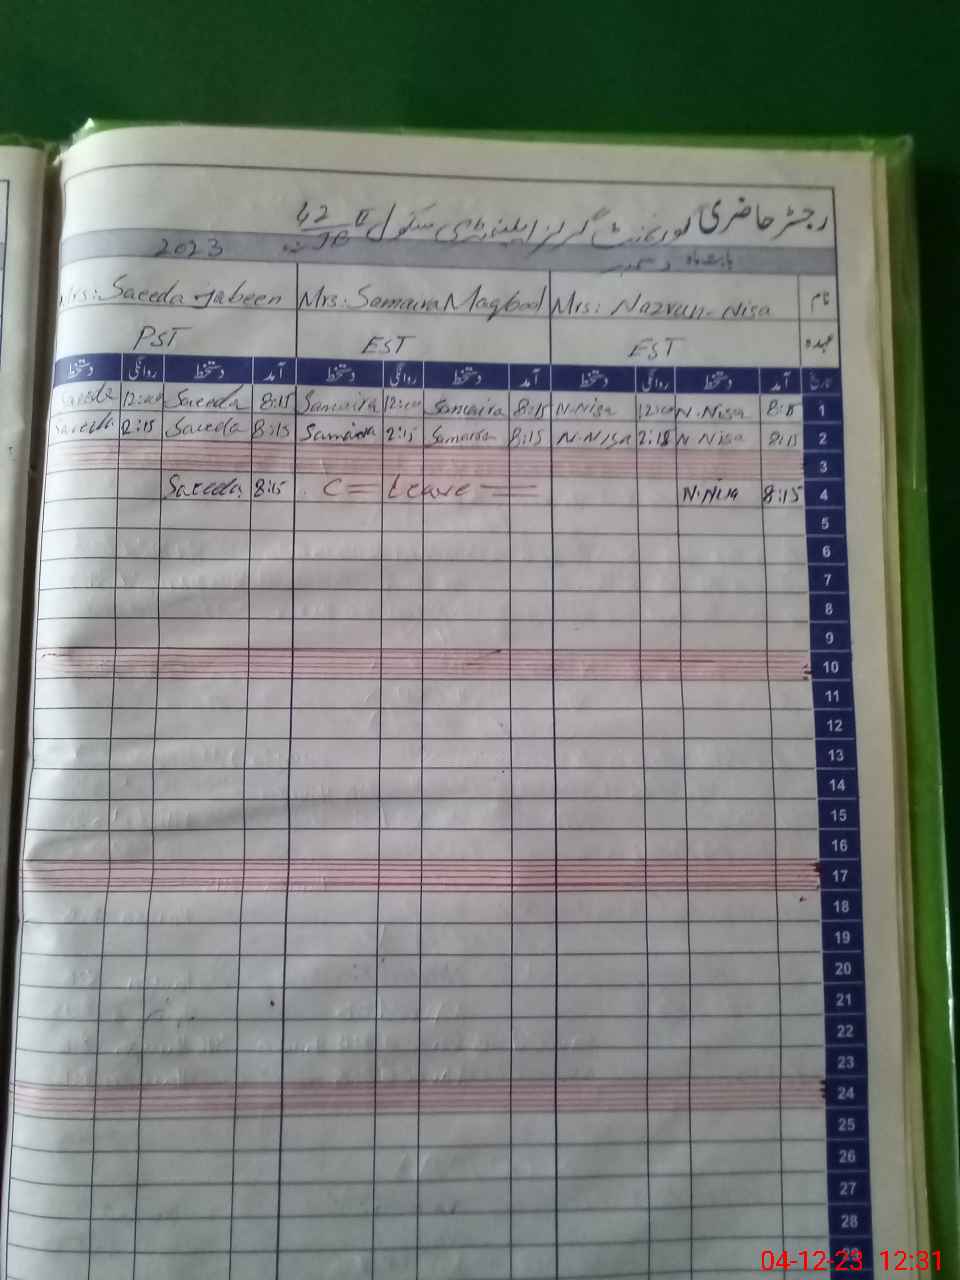 رجسٹر حاضری گورنمنٹ گرلز ایلیمنٹری سکول 42/JB II
بابت ماہ دسمبر 2023
نام Mrs: Nazrun-Nisa Mrs: Samaira Maqbool Mrs: Saeeda Jabeen
عہدہ EST EST PST
تاریخ آمد دستخط روانگی دستخط آمد دستخط روانگی دستخط آمد دستخط روانگی دستخط
1 8:15 N.Nisa 12:00 N.Nisa 8:15 Samaira 12:00 Samaira 8:15 Saeeda 12:00 Saeeda
2 8:15 N Nisa 2:15 N.Nisa 8:15 Samaira 2:15 Samaira 8:15 Saeeda 2:15 Saeeda
3
4 8:15 N.Nisa C = Leave = 8:15 Saeeda
5
6
7
8
9
10
11
12
13
14
15
16
17
18
19
20
21
22
23
24
25
26
27
28
29
04-12-23 12:31